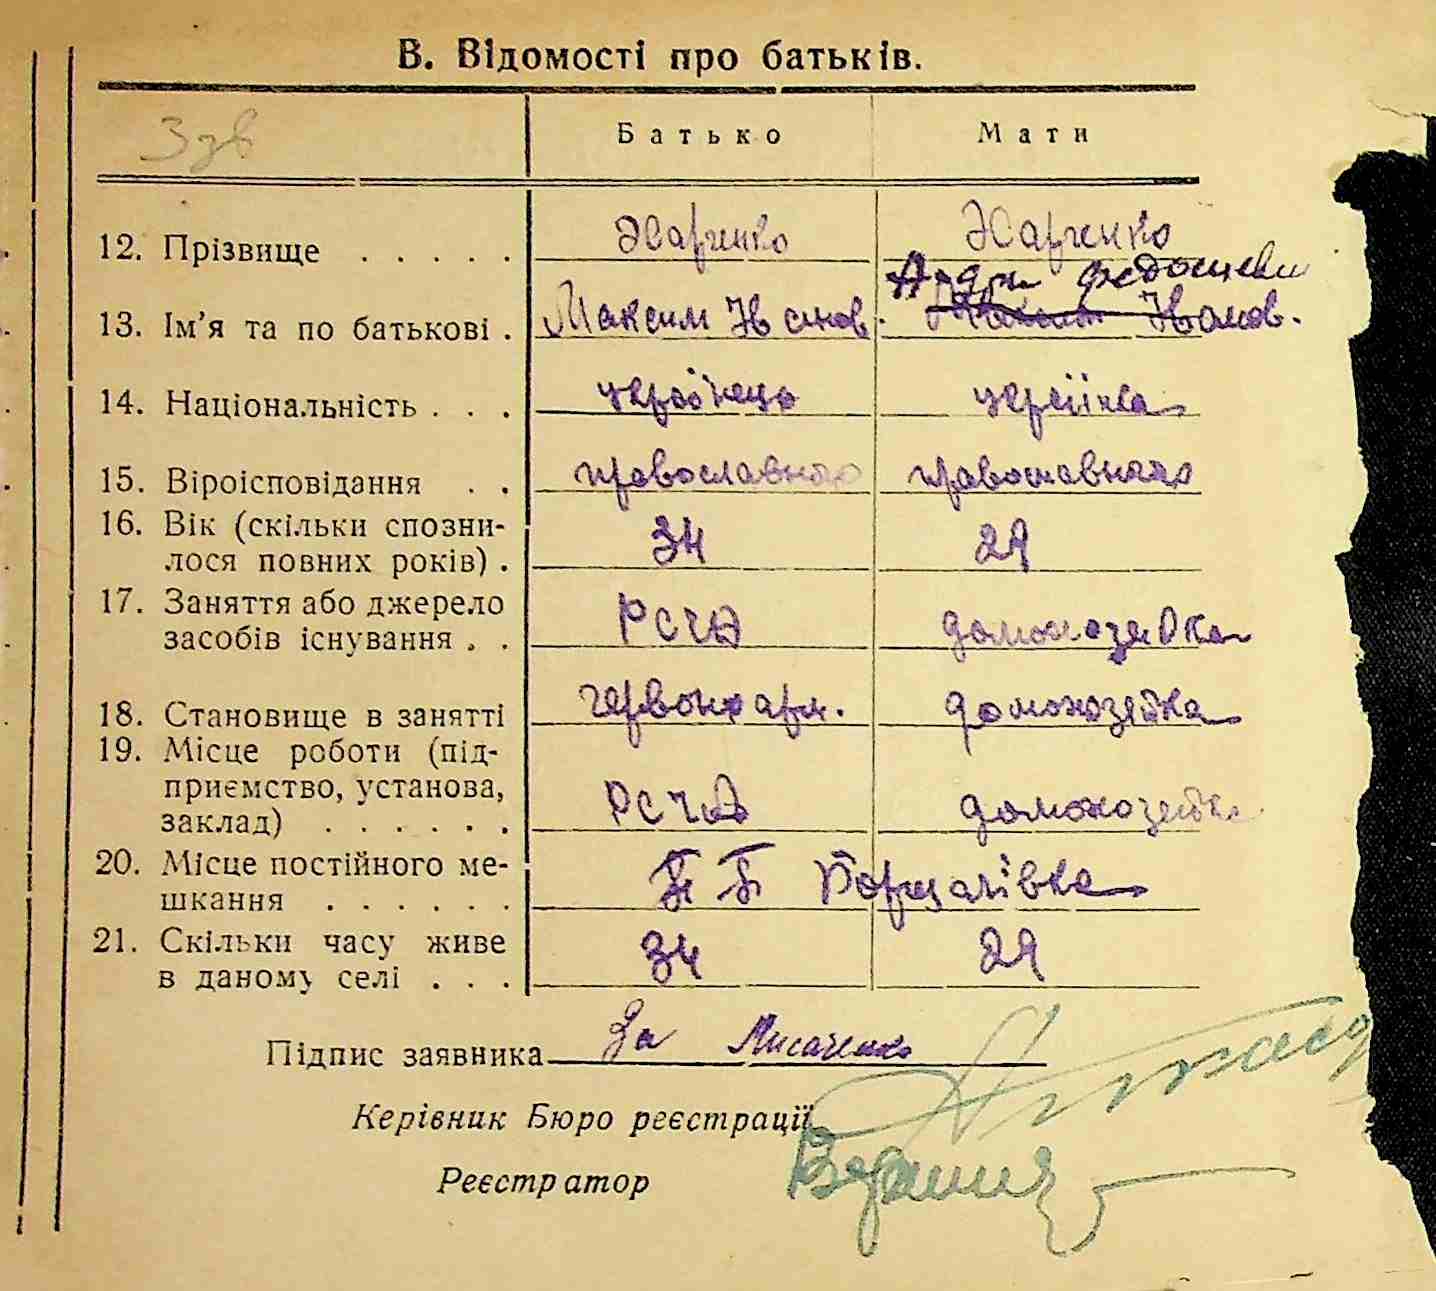 В. Відомості про батьків.
Батько Мати
12. Прізвище . . . . . Харченко Харченко
Федосієвн
13. Ім'я та по батькові . Максим Іванов. Максим Іванов.
14. Національність . . . українець українка
15. Віроісповідання . . православного православного
16. Вік (скільки спозни-
лося повних років) . 34 29
17. Заняття або джерело
засобів існування . . РСЧА домохозяйка
18. Становище в занятті червоноарм. домохозяйка
19. Місце роботи (під-
приємство, установа,
заклад) . . . . . . РСЧА домохозяйка
20. Місце постійного ме-
шкання . . . . . . П Б Борщагівка
21. Скільки часу живе
в даному селі . . . 34 29
Підпис заявника За Лисаченко
Керівник Бюро реєстрації
Реєстратор